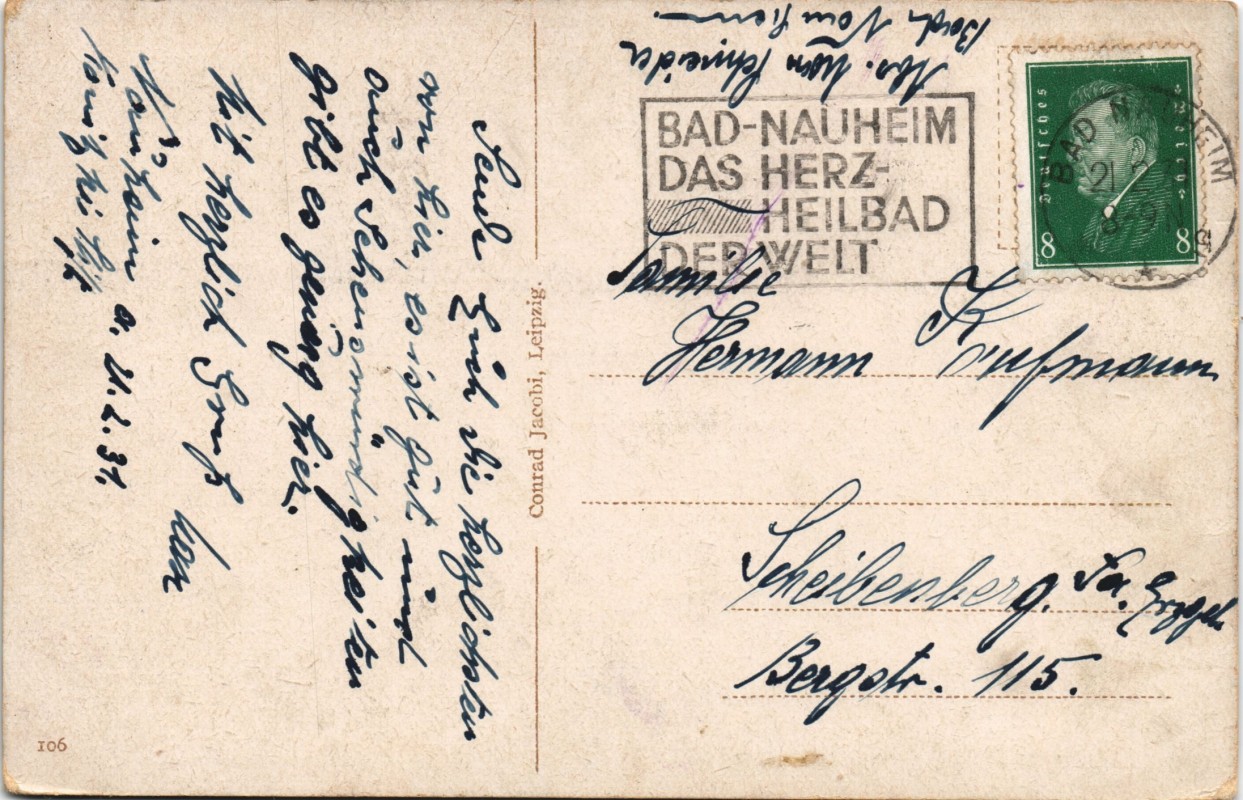 Abs. Schneider
Bad Nauheim
BAD-NAUHEIM
DAS HERZ-
HEILBAD
DER WELT
Deutsches Reich
8 8
BAD NAUHEIM
21.2.
8-9
Familie
Hermann Kaufmann
Scheibenberg. Sa. Erzgeb
Bergstr. 115.
Sende Euch die herzlichsten
von hier, es ist gut und
auch Sehenswürdigkeiten
gibt es genug hier.
Mit herzlich Gruß von
Nauheim d. 21.2.31.
Conrad Jacobi, Leipzig.
106